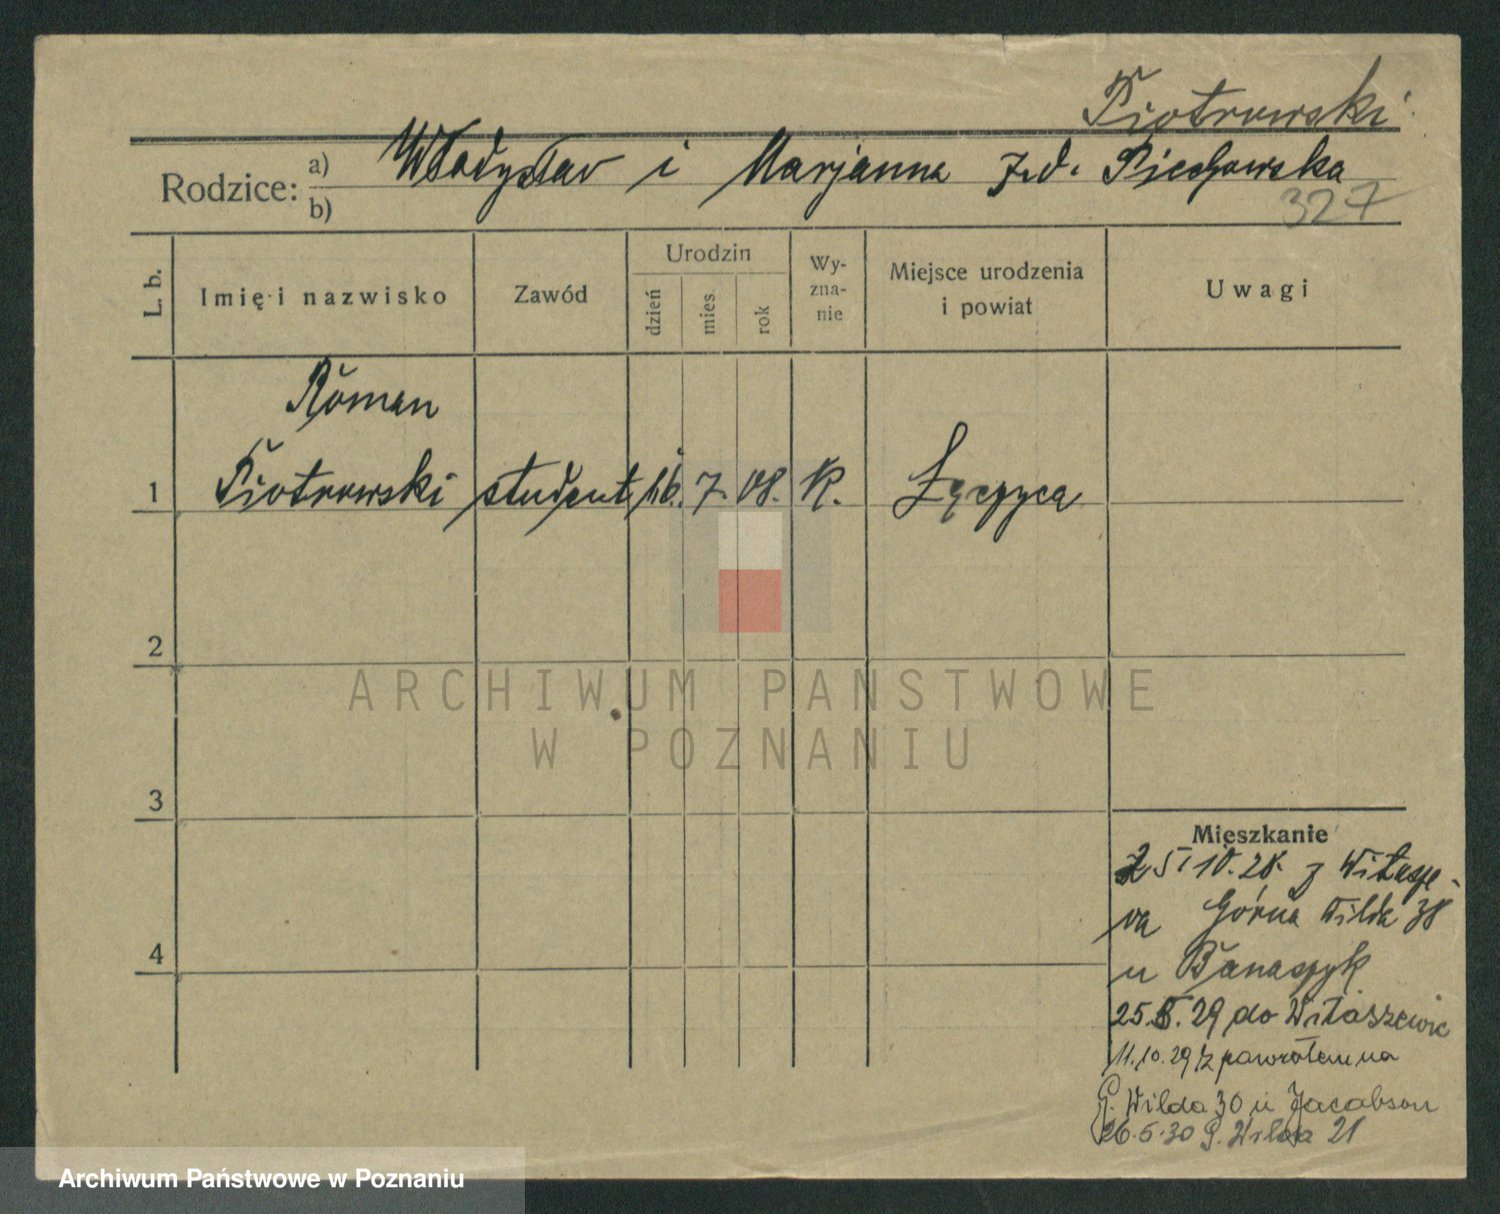 Piotrowski
Rodzice: a) Władysław i Marjanna z d. Piechowska
b)
327
L. b.
Imię i nazwisko
Zawód
Urodzin
dzień
mies.
rok
Wy-
zna-
nie
Miejsce urodzenia
i powiat
Uwagi
Roman
1 Piotrowski student 16. 7. 08. K. Łęczyca
2
3
4
ARCHIWUM PAŃSTWOWE
W POZNANIU
Mieszkanie
10. 28. z
na Górna Wilda 38
u Banaszyk
25. 29 do Witaszewic
11.10.29 z powrotem na
G. Wilda 30 u Jacobson
26.6.30 G. Wilda 21
Archiwum Państwowe w Poznaniu